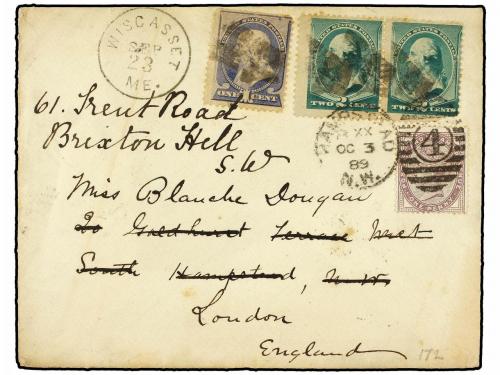 WISCASSET
SEP
23
ME.
UNITED STATES POSTAGE
ONE 1 CENT
TWO 2 CENTS
TWO 2 CENTS
HAMPSTEAD
XX
OC 3
89
N.W.
4
61. Trent Road
Brixton Hill
S.W
Miss Blanche Dougan
20 Goldhurst Terrace West
South Hampstead, N.W.
London
England
172